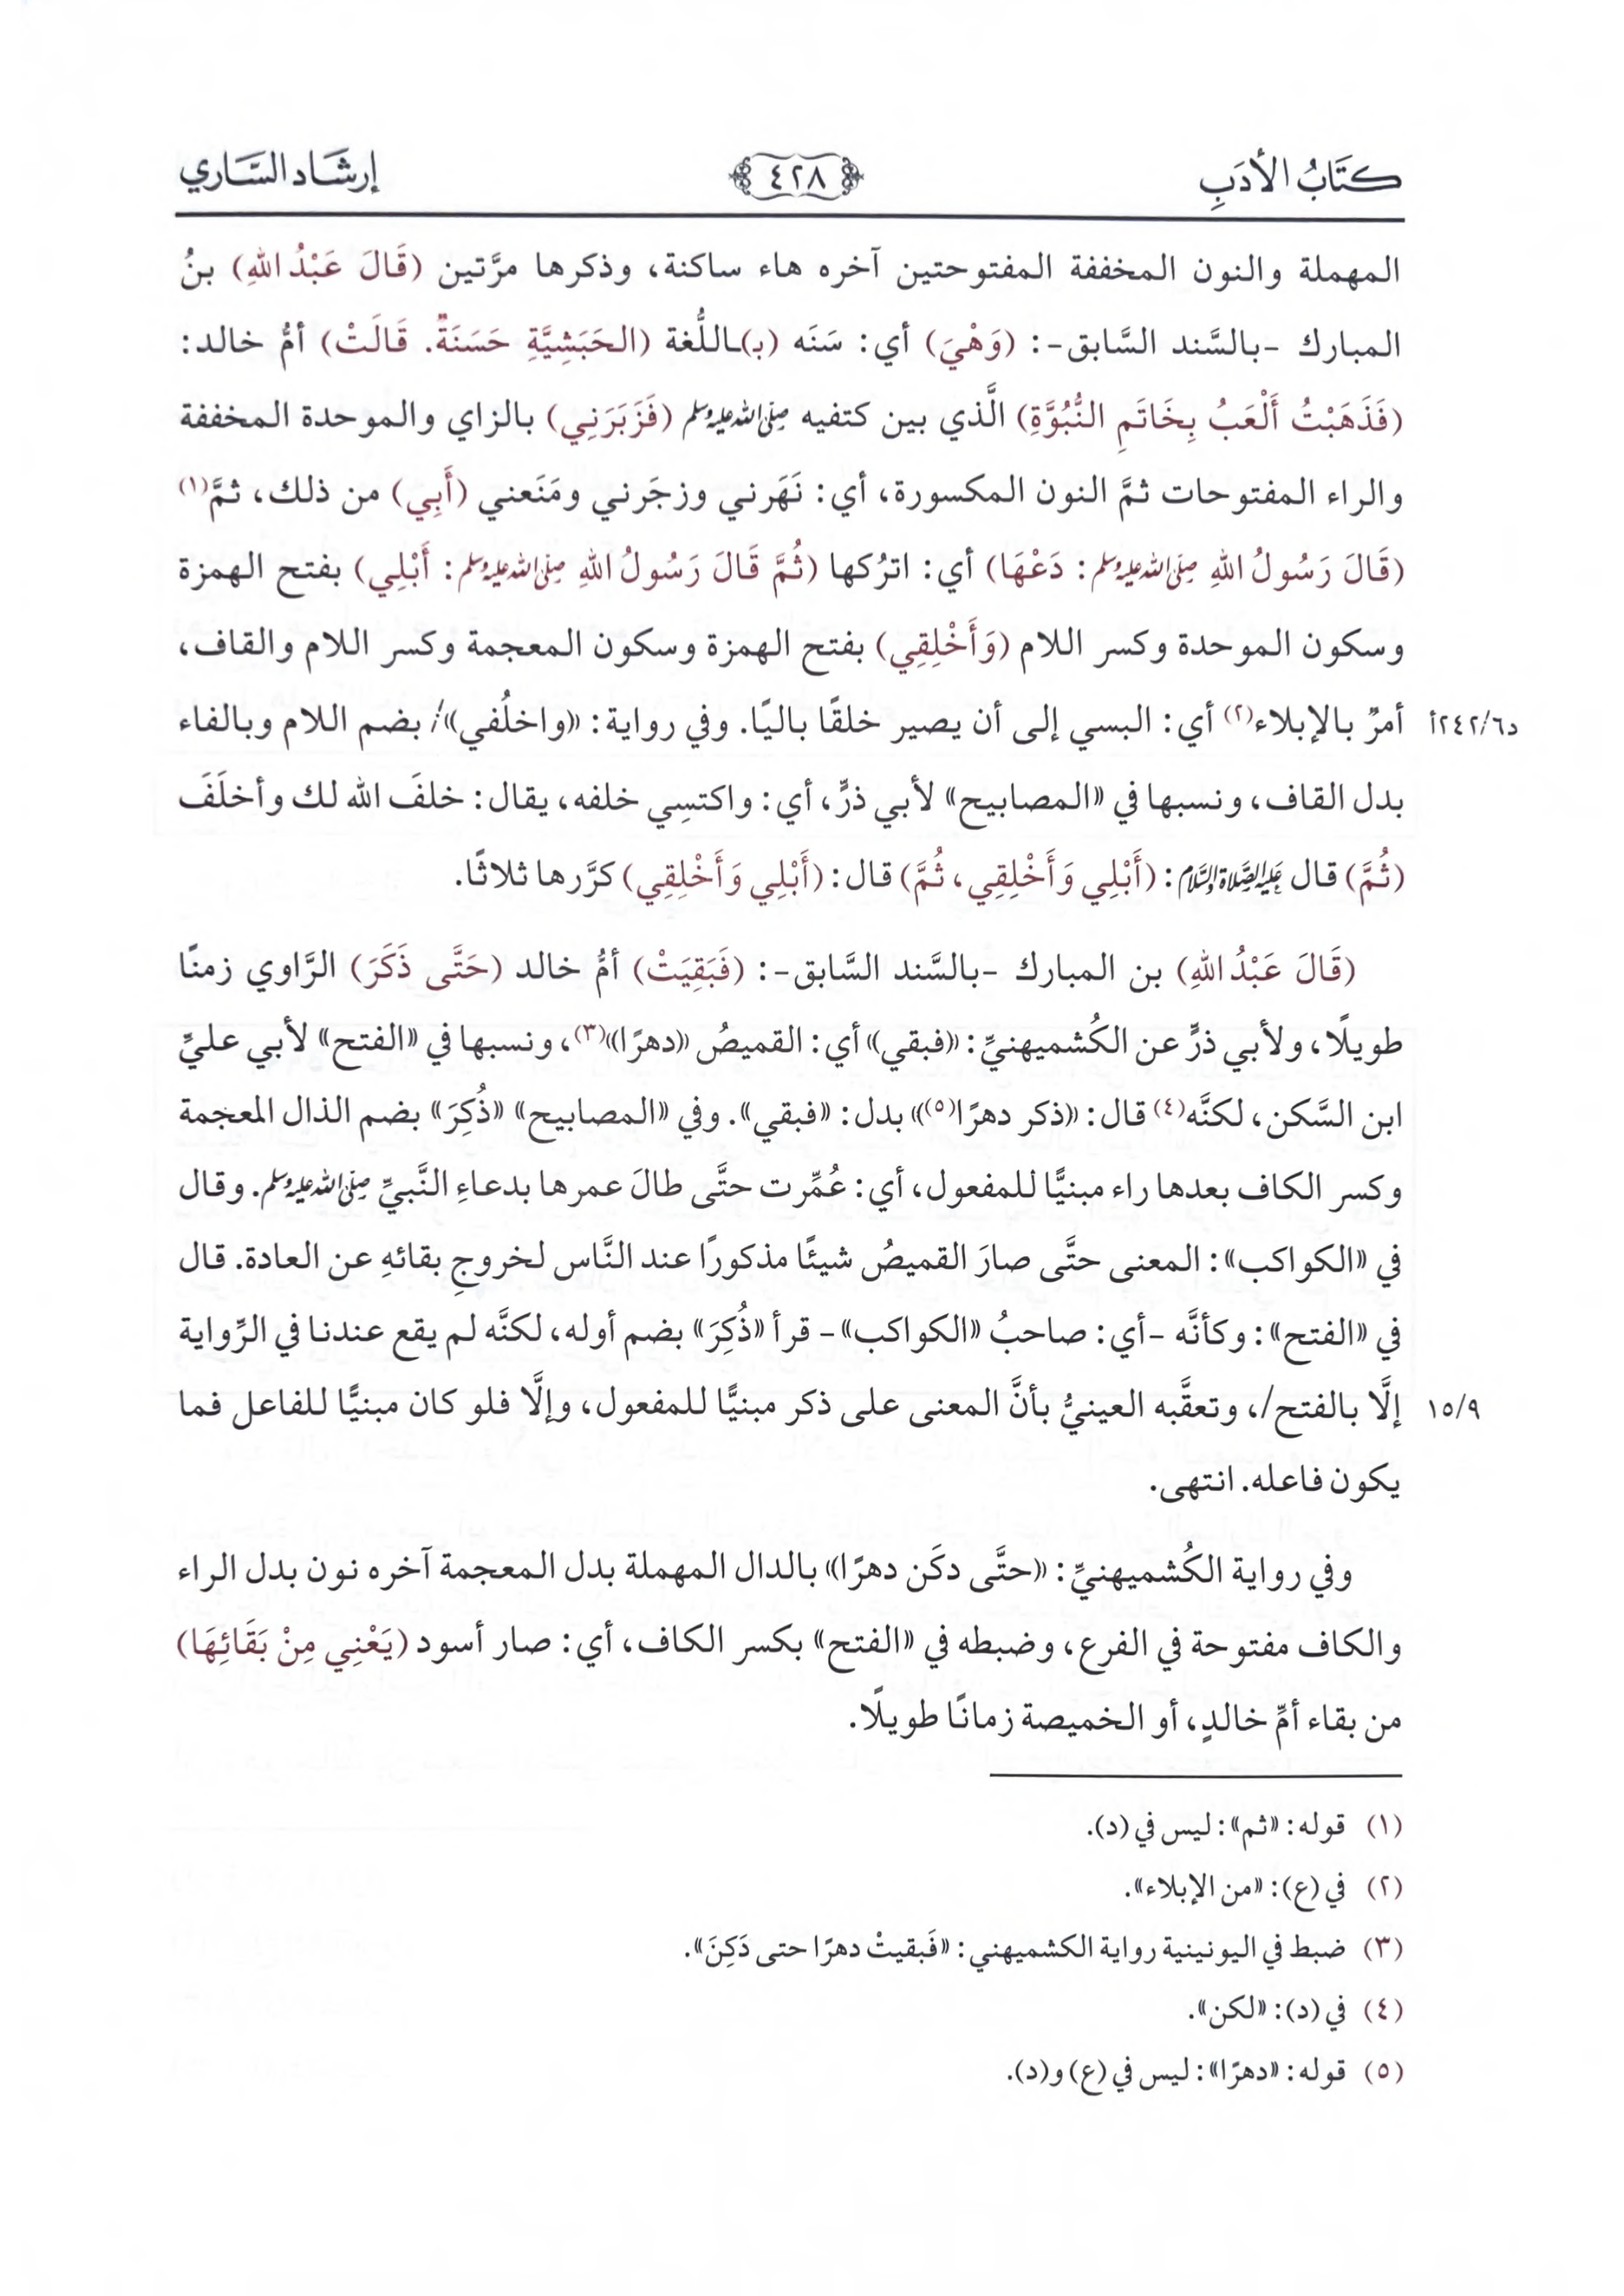 كتَابُ الأدَبِ
٤٢٨
إرشَاد السَّاري
المهملة والنون المخففة المفتوحتين آخره هاء ساكنة، وذكرها مرَّتين (قَالَ عَبْدُ اللهِ) بنُ
المبارك -بالسَّند السَّابق-: (وَهْيَ) أي: سَنَه (بـ)ـاللُّغة (الحَبَشِيَّةِ حَسَنَةٌ. قَالَتْ) أمُّ خالد:
(فَذَهَبْتُ أَلْعَبُ بِخَاتَمِ النُّبُوَّةِ) الَّذي بين كتفيه صلى الله عليه وسلم (فَزَبَرَنِي) بالزاي والموحدة المخففة
والراء المفتوحات ثمَّ النون المكسورة، أي: نَهَرني وزجَرني ومَنَعني (أَبِي) من ذلك، ثمَّ(١)
(قَالَ رَسُولُ اللهِ صلى الله عليه وسلم: دَعْهَا) أي: اترُكها (ثُمَّ قَالَ رَسُولُ اللهِ صلى الله عليه وسلم: أَبْلِي) بفتح الهمزة
وسكون الموحدة وكسر اللام (وَأَخْلِقِي) بفتح الهمزة وسكون المعجمة وكسر اللام والقاف،
د٢٤٢/٦أ أمرٌ بالإبلاء(٢) أي: البسي إلى أن يصير خلقًا باليًا. وفي رواية: «واخلُفي»/ بضم اللام وبالفاء
بدل القاف، ونسبها في «المصابيح» لأبي ذرٍّ، أي: واكتسِي خلفه، يقال: خلفَ الله لك وأخلَفَ
(ثُمَّ) قال عليه الصلاة والسلام: (أَبْلِي وَأَخْلِقِي، ثُمَّ) قال: (أَبْلِي وَأَخْلِقِي) كرَّرها ثلاثًا.
(قَالَ عَبْدُ اللهِ) بن المبارك -بالسَّند السَّابق-: (فَبَقِيَتْ) أمُّ خالد (حَتَّى ذَكَرَ) الرَّاوي زمنًا
طويلًا، ولأبي ذرٍّ عن الكُشميهنيِّ: «فبقي» أي: القميصُ «دهرًا»(٣)، ونسبها في «الفتح» لأبي عليٍّ
ابن السَّكن، لكنَّه(٤) قال: «ذكر دهرًا(٥)» بدل: «فبقي». وفي «المصابيح» «ذُكِرَ» بضم الذال المعجمة
وكسر الكاف بعدها راء مبنيًّا للمفعول، أي: عُمِّرت حتَّى طالَ عمرها بدعاءِ النَّبيِّ صلى الله عليه وسلم. وقال
في «الكواكب»: المعنى حتَّى صارَ القميصُ شيئًا مذكورًا عند النَّاس لخروجِ بقائهِ عن العادة. قال
في «الفتح»: وكأنَّه -أي: صاحبُ «الكواكب»- قرأ «ذُكِرَ» بضم أوله، لكنَّه لم يقع عندنا في الرِّواية
١٥/٩ إلَّا بالفتح/، وتعقَّبه العينيُّ بأنَّ المعنى على ذكر مبنيًّا للمفعول، وإلَّا فلو كان مبنيًّا للفاعل فما
يكون فاعله. انتهى.
وفي رواية الكُشميهنيِّ: «حتَّى دكَن دهرًا» بالدال المهملة بدل المعجمة آخره نون بدل الراء
والكاف مفتوحة في الفرع، وضبطه في «الفتح» بكسر الكاف، أي: صار أسود (يَعْنِي مِنْ بَقَائِهَا)
من بقاء أمِّ خالدٍ، أو الخميصة زمانًا طويلًا.
(١) قوله: «ثم»: ليس في (د).
(٢) في (ع): «من الإبلاء».
(٣) ضبط في اليونينية رواية الكشميهني: «فَبقيتْ دهرًا حتى دَكِنَ».
(٤) في (د): «لكن».
(٥) قوله: «دهرًا»: ليس في (ع) و(د).